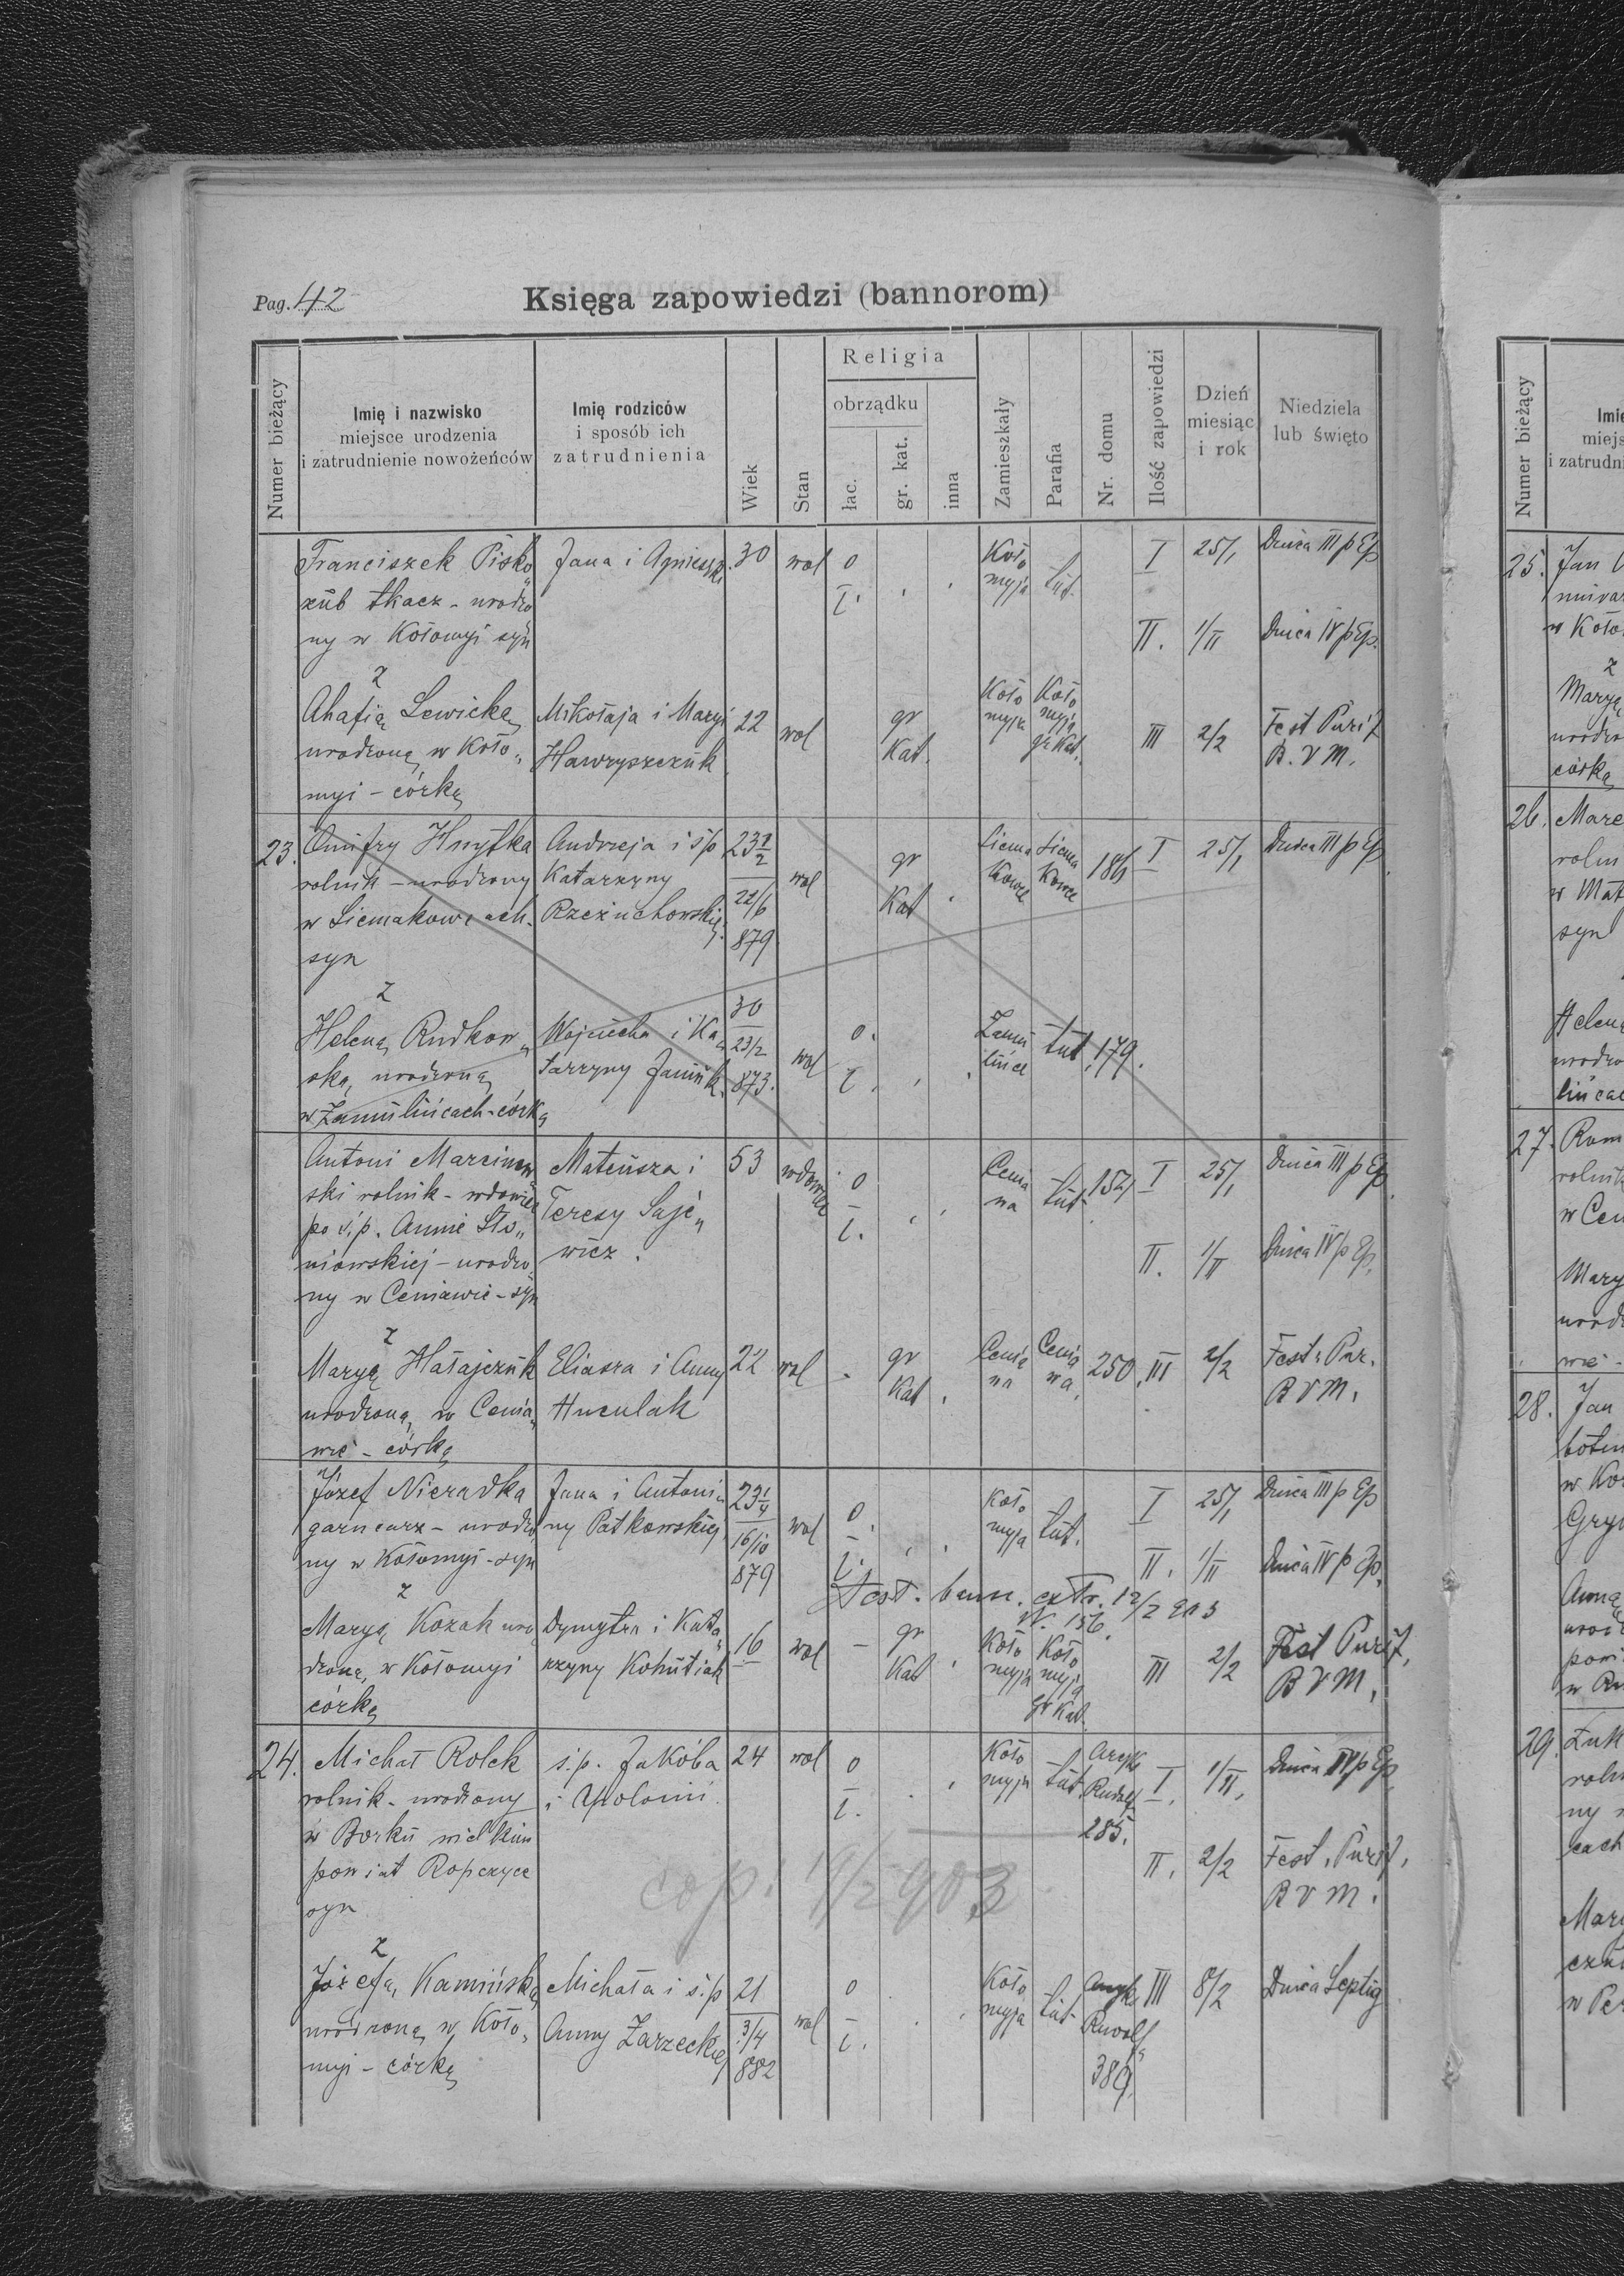 Pag. 42
Księga zapowiedzi (bannorom)
Numer bieżący
Imię i nazwisko
miejsce urodzenia
i zatrudnienie nowożeńców
Imię rodziców
i sposób ich
zatrudnienia
Wiek
Stan
Religia
obrządku
łac.
gr. kat.
inna
Zamieszkały
Parafia
Nr. domu
Ilość zapowiedzi
Dzień
miesiąc
i rok
Niedziela
lub święto
Franciszek Pisko„
zub tkacz - urodzo
ny w Kołomyi syn
Jana i Agnieszki
30
wol
o
ł.
Koło
myja
tut.
I
25/1
Dnica III p Ep
II.
1/II
Dnica IV p Ep.
z
Ahafią Lewicką
urodzoną w Koło„
myi - córką
Mikołaja i Maryi
Hawryszczuk
22
wol
gr
Kat.
Koło
myja
Koło
myja
gr Kat.
III
2/2
Fest Purif
B. V M.
23.
Onufry Hnytka
rolnik - urodzony
w Siemakowcach -
syn
Andrzeja i ś p
Katarzyny
Rzeżuchowskiej
23 1/2
22/6
879
wol
gr
Kat
Siema
Kowce
Siema
Kowce
186
I
25/1
Dnica III p Ep
z
Heleną Rudkow„
ską urodzoną
w Zamulińcach - córką
Wojciecha i Ka„
tarzyny Janiuk
30
23/2
873.
wol
o.
ł.
Zamu
lińce
tut.
179.
Antoni Marcinow
ski rolnik - wdowiec
po ś. p. Annie Sło„
niowskiej - urodzo
ny w Ceniawie - syn
Mateusza i
Teresy Saje„
wicz.
53
wdowiec
o
ł.
Cenia
wa
tut.
154
I
25/1
Dnica III p Ep
II.
1/II
Dnica IV p Ep.
z
Maryą Hałajczuk
urodzoną w Cenia„
wie - córką
Eliasza i Anny
Huculak
22
wol
gr
Kat
Cenia
wa
Cenia
wa
250.
III
2/2
Fest. Pur.
B V M.
Józef Nieradka
garncarz - urodzo
ny w Kołomyi - syn
Jana i Antoni„
ny Patkowskiej
23 1/4
16/10
879
wol
o
ł.
Koło
myja
tut.
I
25/1
Dnica III p Ep
II.
1/II
Dnica IV p Ep.
Test. bann. extr. 12/2 903
N. 156.
z
Maryą Kozak uro
dzoną w Kołomyi
córką
Dymytra i Kata„
rzyny Kohutiak
16
wol
gr
Kat
Koło
myja
Koło
myja
gr Kat.
III
2/2
Fest Purif,
B V M,
24.
Michał Rolek
rolnik - urodzony
w Borku wielkim
powiat Ropczyce
syn
ś. p. Jakóba
i Apolonii
24
wol
o
ł.
Koło
myja
tut.
Arcyk
Rudolf
285.
I.
1/II,
Dnica IV p Ep,
II.
2/2
Fest. Purif,
B V M.
cop. 9/2 903
z
Józefą Kamińską
urodzoną w Koło„
myi - córką
Michała i ś. p
Anny Zarzeckiej
21
3/4
882
wol
o
ł.
Koło
myja
tut
Arcyk
Rudolfa
389.
III
8/2
Dnica Septig
Numer bieżący
25.
Jan
w Koło
z
Maryą
urodzo
córką
26.
rolni
syn
Heleną
urodzo
27.
rolnik
w Cen
Mary
28.
Jan
Anną
29.
roln
cach
w Pe